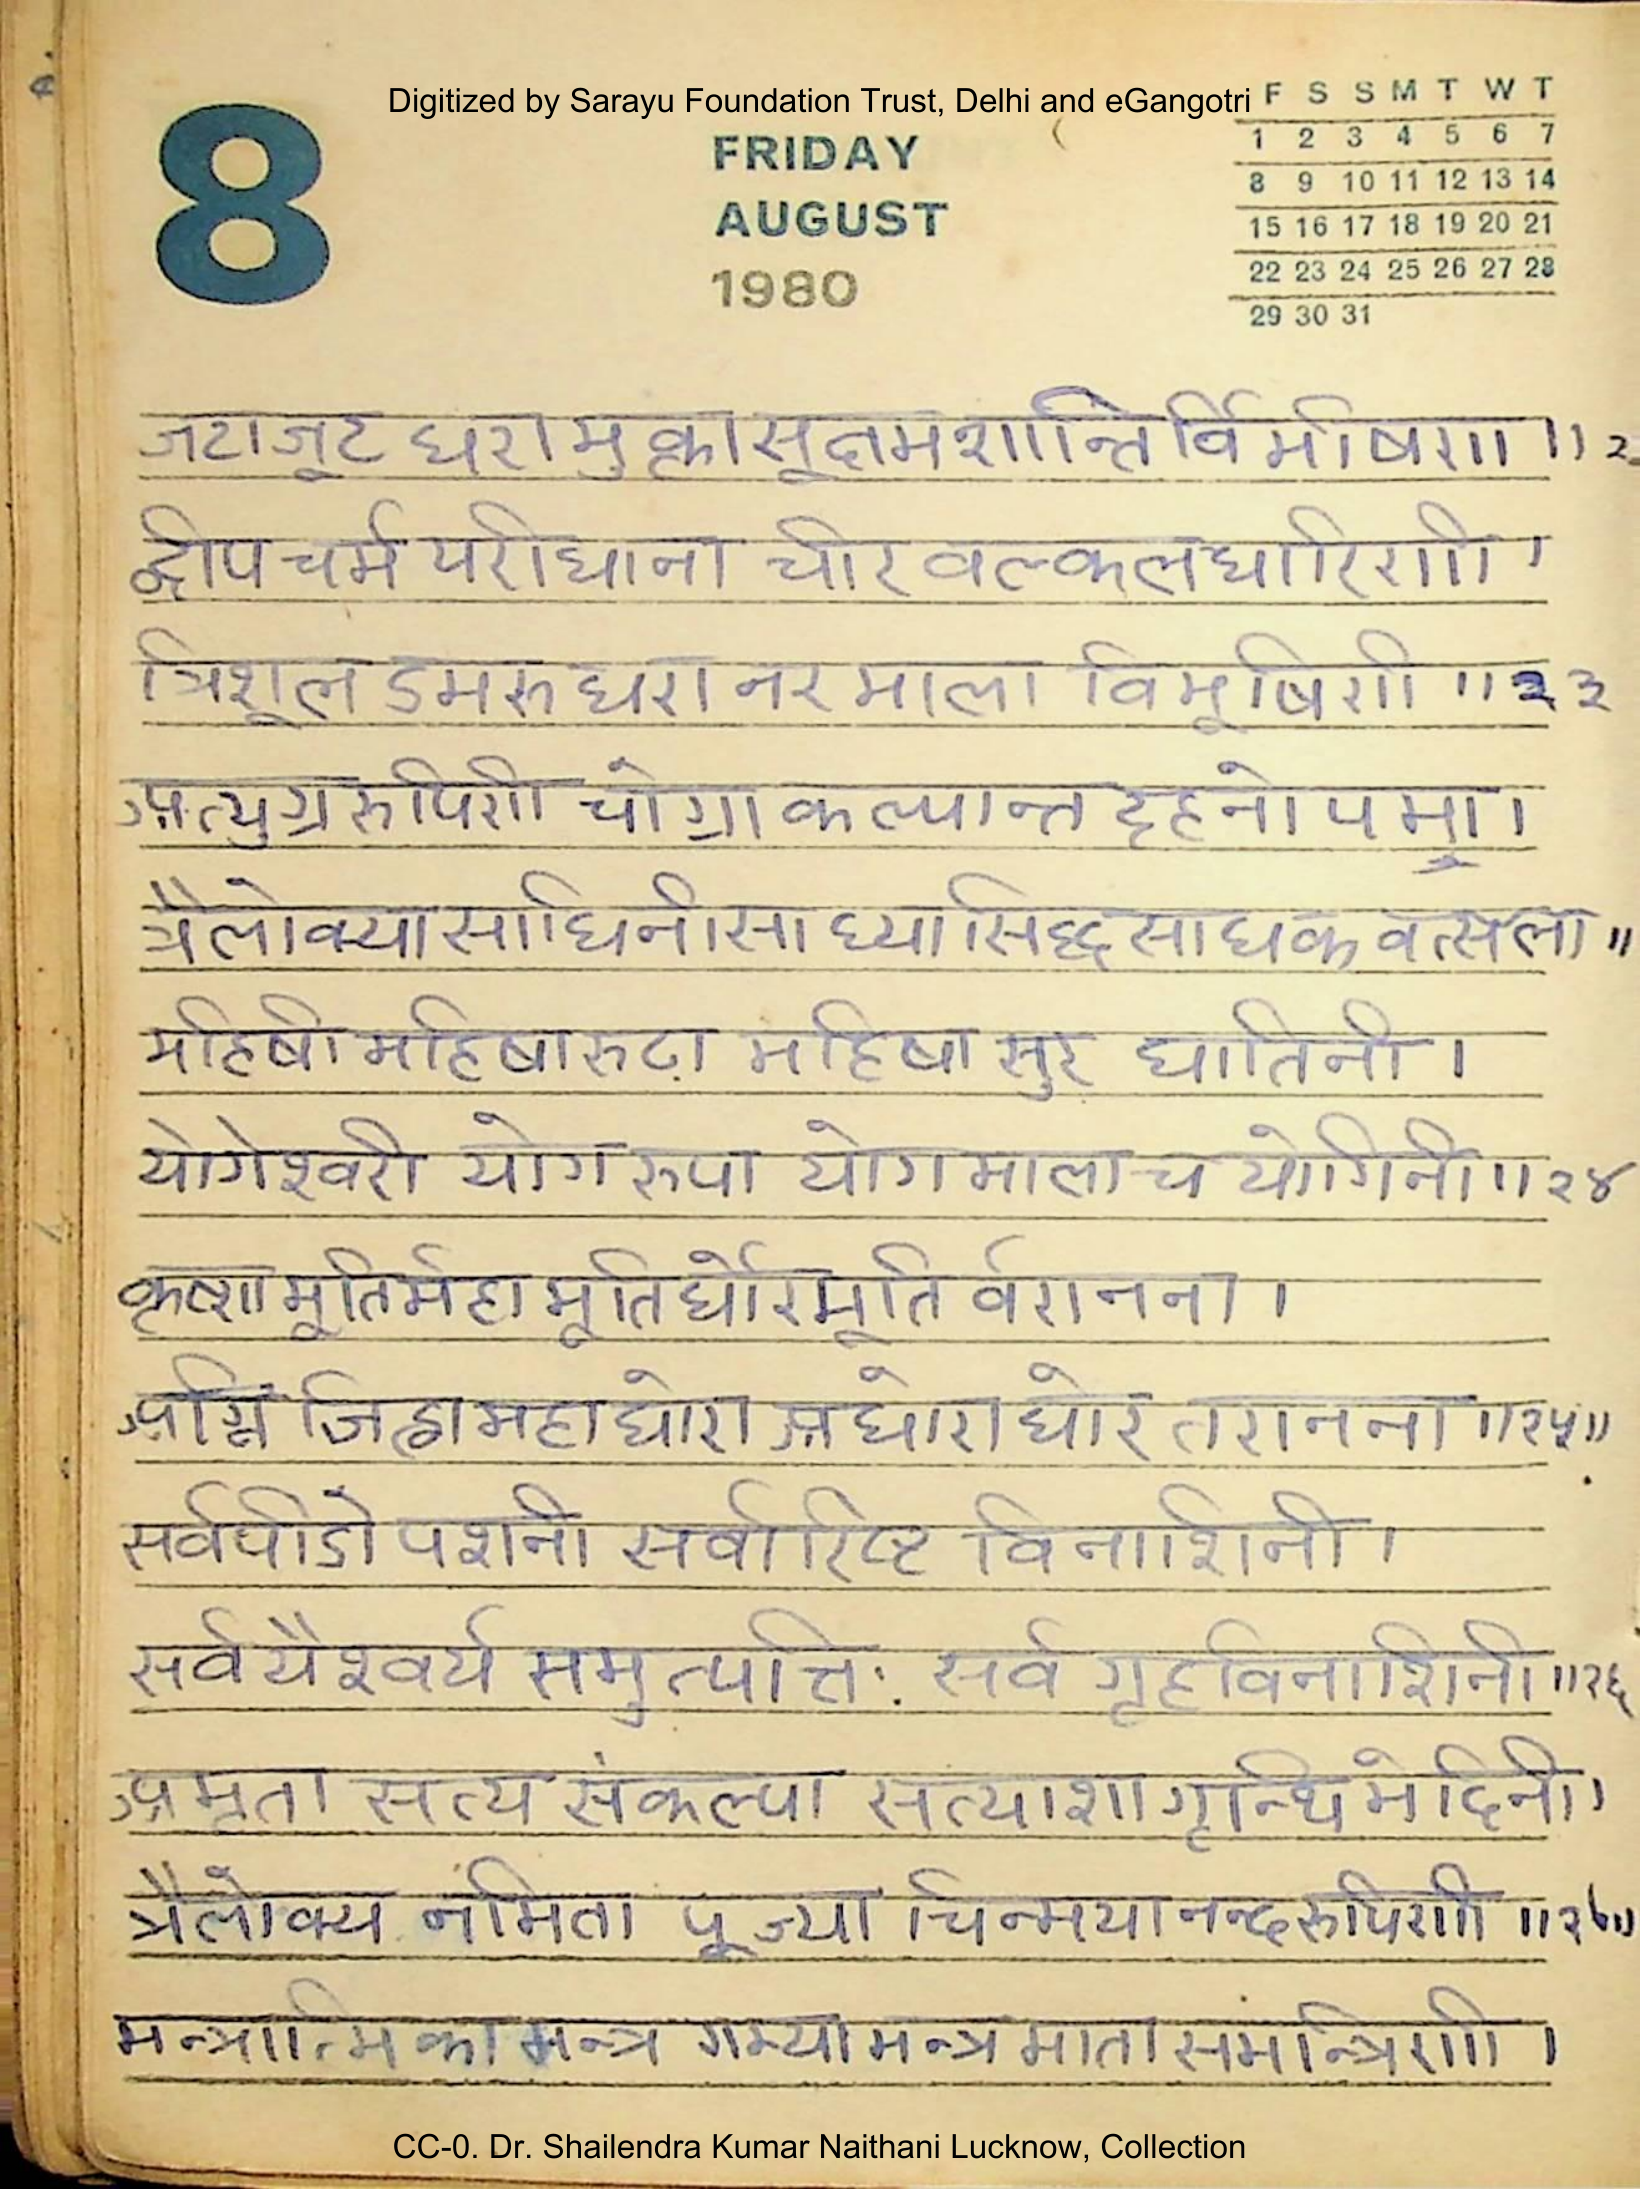 Digitized by Sarayu Foundation Trust, Delhi and eGangotri
8
FRIDAY
AUGUST
1980
F S S M T W T
1 2 3 4 5 6 7
8 9 10 11 12 13 14
15 16 17 18 19 20 21
22 23 24 25 26 27 28
29 30 31
जटाजूट धरा मुक्ता सूक्ष्मशान्तिर्विभीषणा ॥ २
द्वीपचर्म परीधाना चीर वल्कलधारिणी ।
त्रिशूल डमरु धरा नर माला विभूषिणी ॥ २३
अत्युग्र रुपिणी चोग्रा कल्पान्त दहनोपमा ।
त्रैलोक्या साधिनी साध्या सिद्ध साधक वत्सला ॥
महिषी महिषारुढ़ा महिषा सुर घातिनी ।
योगेश्वरी योग रुपा योग माला च योगिनी ॥ २४
कृष्णा मूर्तिर्महा मूर्तिर्घोरमूर्ति र्वरानना ।
अग्नि जिह्वा महाघोरा अघोरा घोर तरानना ॥२५॥
सर्वपीडो पशनी सर्वारिष्ट विनाशिनी ।
सर्व यैश्वर्य समुत्पत्तिः सर्व गृहविनाशिनी ॥२६
अमृता सत्य संकल्पा सत्याशा गृन्थि भेदिनी ।
त्रैलोक्य नमिता पूज्या चिन्मयानन्दरुपिणी ॥२७॥
मन्त्रात्मिका मन्त्र गम्या मन्त्र माता समन्त्रिणी ।
CC-0. Dr. Shailendra Kumar Naithani Lucknow, Collection